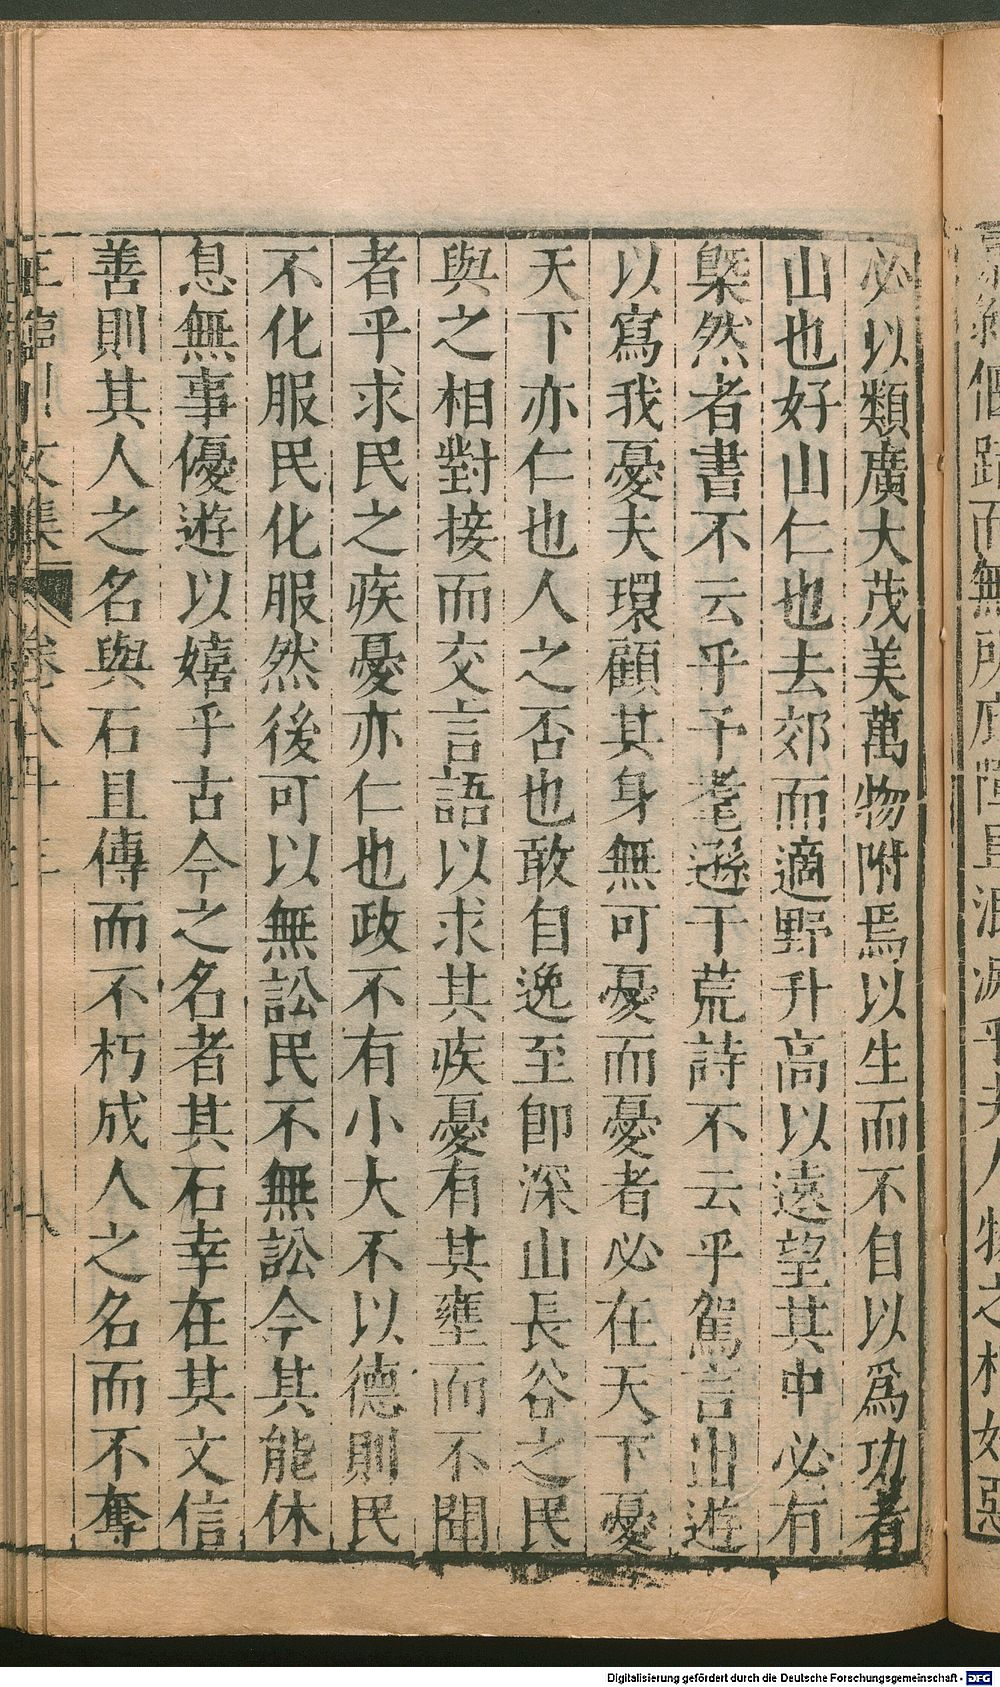 必以類廣大茂美萬物附焉以生而不自以爲功者
山也好山仁也去郊而適野升高以遠望其中必有
槩然者書不云乎予耄遜于荒詩不云乎駕言出遊
以寫我憂夫環顧其身無可憂而憂者必在天下憂
天下亦仁也人之否也敢自逸至卽深山長谷之民
與之相對接而交言語以求其疾憂有其壅而不聞
者乎求民之疾憂亦仁也政不有小大不以德則民
不化服民化服然後可以無訟民不無訟今其能休
息無事優遊以嬉乎古今之名者其石幸在其文信
善則其人之名與石且傳而不朽成人之名而不奪
王臨川文集 卷八十三 八
Digitalisierung gefördert durch die Deutsche Forschungsgemeinschaft - DFG